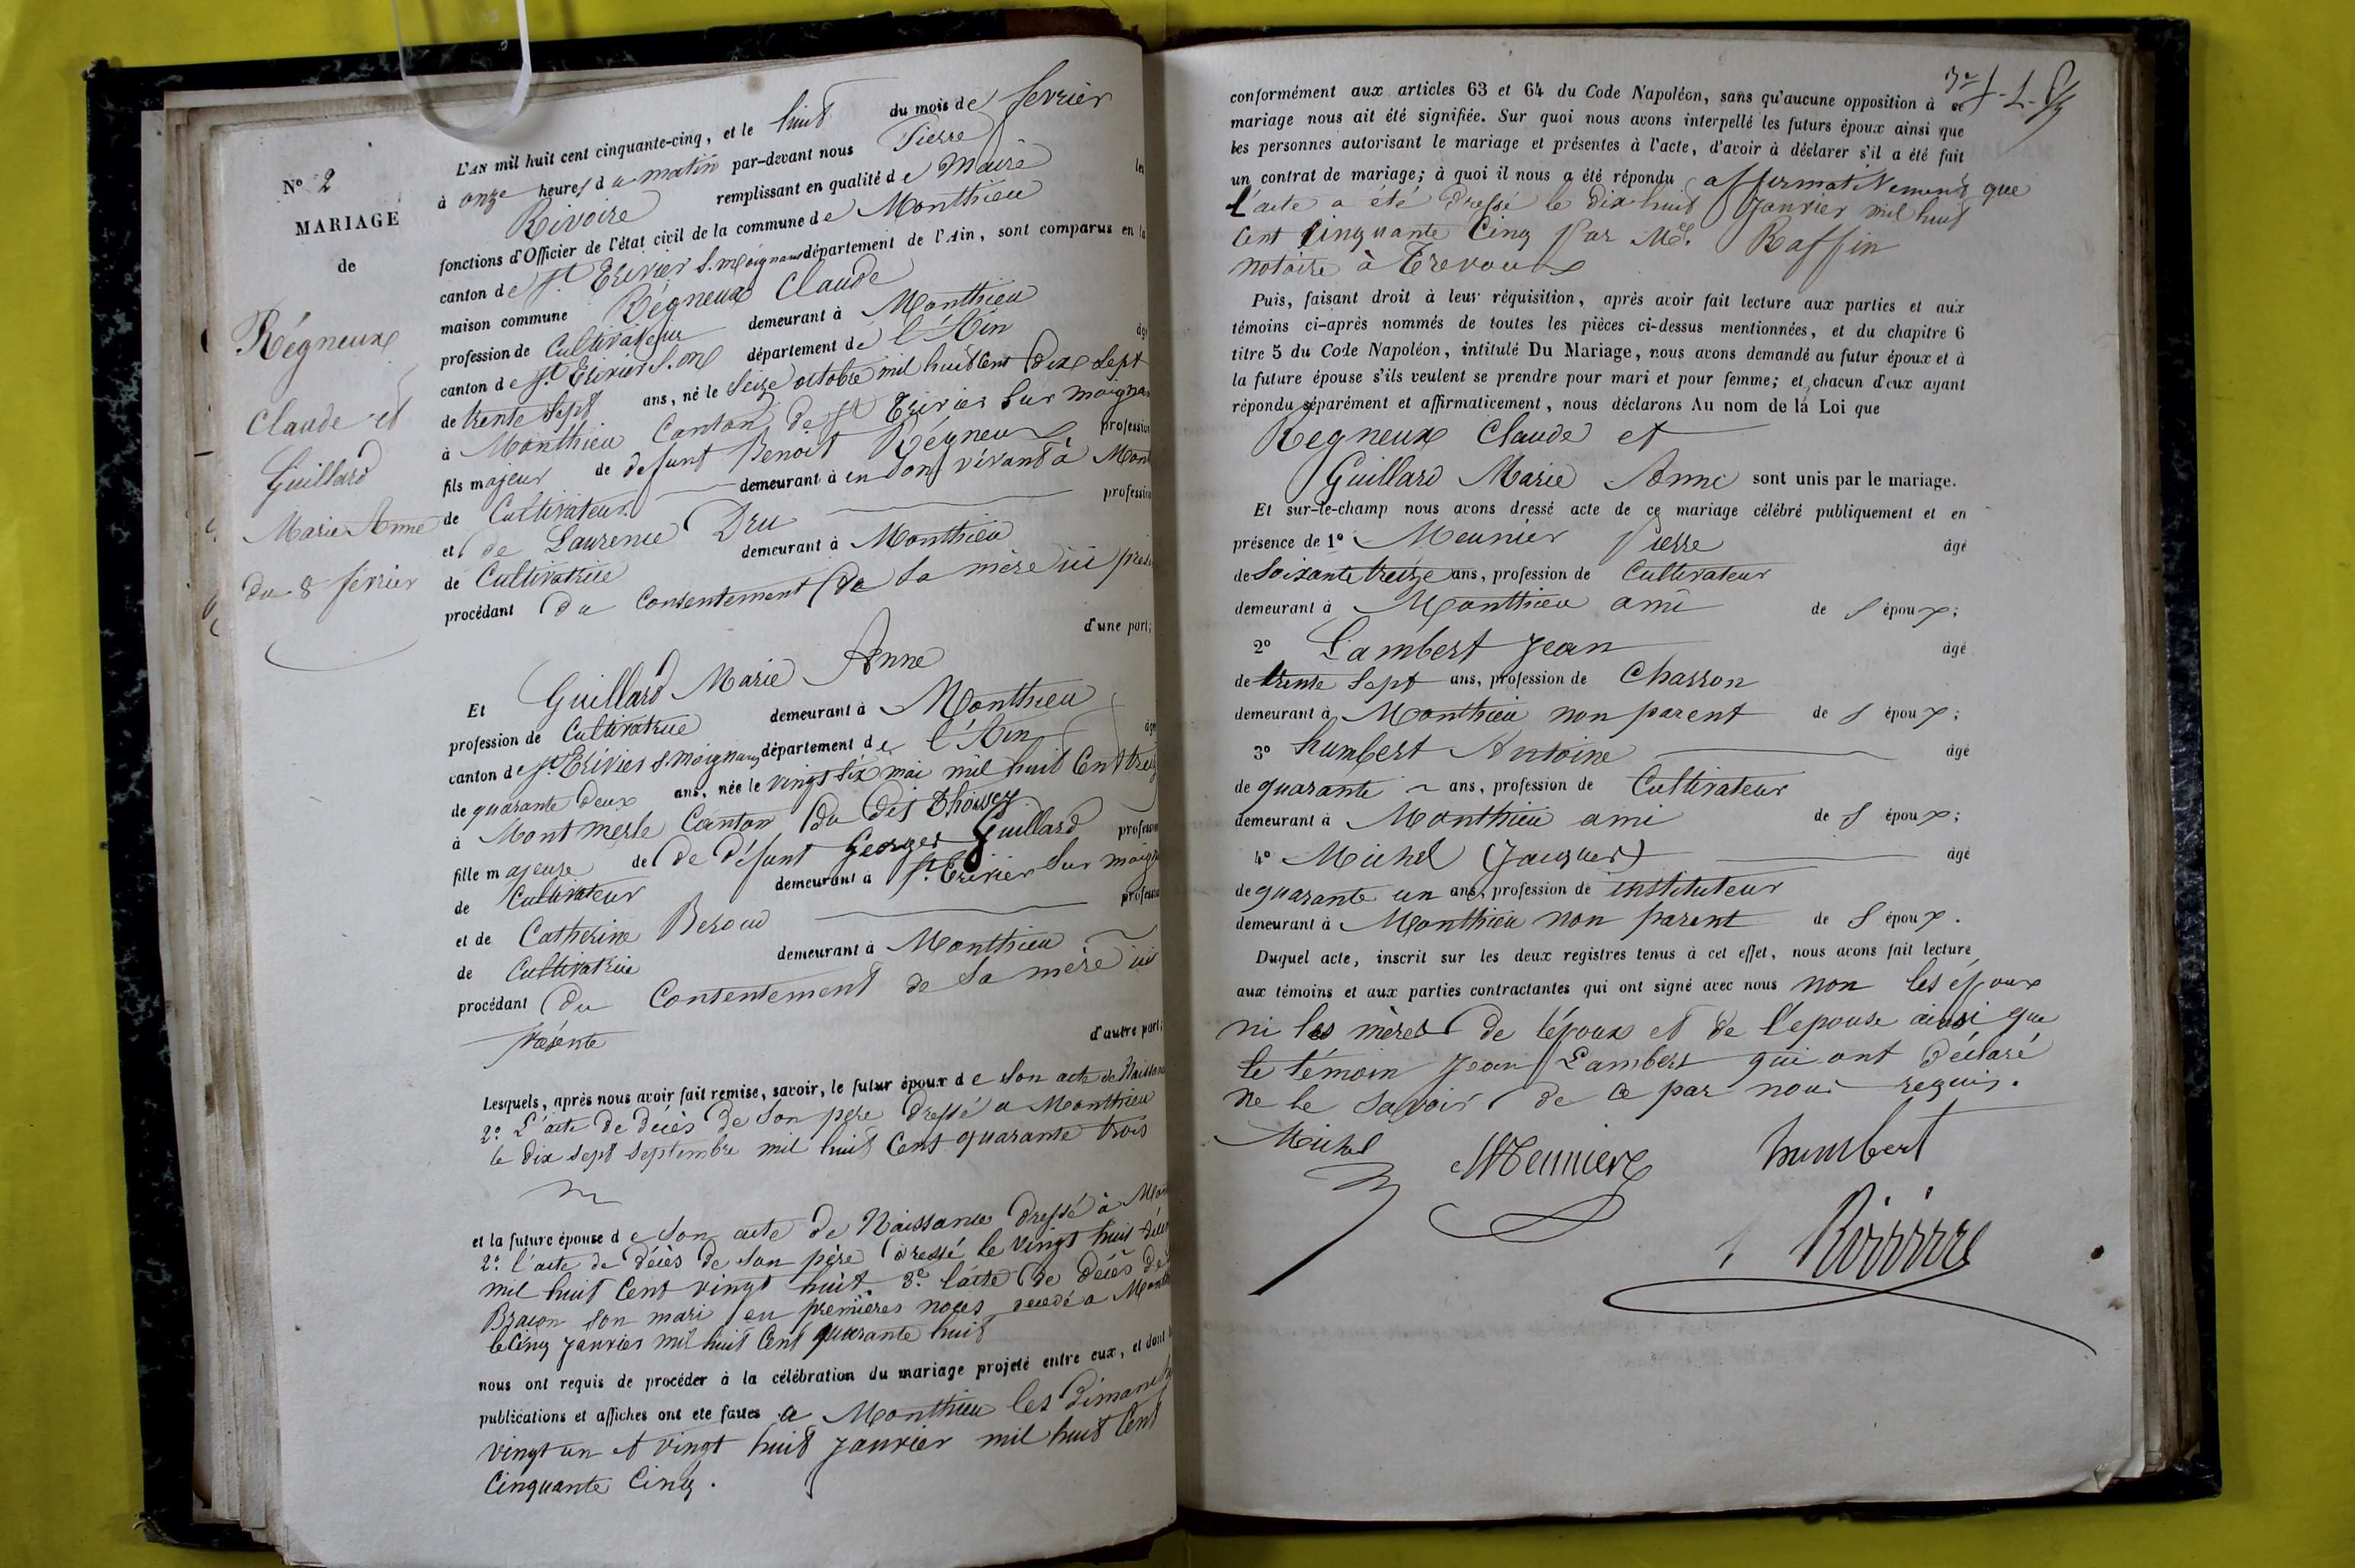 N° 2
MARIAGE
de
Régneux
Claude et
Guillard
Marie Anne
du 8 février
L'AN mil huit cent cinquante-cinq, et le huit du mois de fevrier
à onze heures du matin par-devant nous Pierre
Rivoire remplissant en qualité de Maire les
fonctions d'Officier de l'état civil de la commune de Monthieu
canton de St Trivier s. moignans département de l'Ain, sont comparus en la
maison commune Régneux Claude
profession de Cultivateur demeurant à Monthieu
canton de St Trivier s. m département de l'Ain âgé
de trente sept ans, né le seize octobre mil huit cent dix sept
à Monthieu Canton de St Trivier sur moignans
fils majeur de defunt Benoit Régneux profession
de Cultivateur demeurant à en son vivant à Mont
et de Laurence Dru profession
de Cultivatrice demeurant à Monthieu
procédant du Consentement de sa mère ici pres
d'une part;
Et Guillard Marie Anne
profession de Cultivatrice demeurant à Monthieu
canton de St Trivier s moignans département de l'Ain âgé
de quarante deux ans, née le vingt six mai mil huit Cent treiz
à Montmerle Canton du dit Thoissey
fille majeure de de défunt Georges Guillard profession
de Cultivateur demeurant à St Trivier sur moign
et de Catherine Beroud profession
de Cultivatrice demeurant à Monthieu
procédant du Consentement de sa mère ici
présente d'autre part;
Lesquels, après nous avoir fait remise, savoir, le futur époux de son acte de Naissan
2° L'acte de décès de son père dressé a Monthieu
le dix sept septembre mil huit Cent quarante trois
et la future épouse de son acte de Naissance dressé à Mon
2° l'acte de décès de son père dressé le vingt huit
mil huit Cent vingt huit. 3e l'acte de décès de
son mari en premières noces décédé a Month
le Cinq Janvier mil huit Cent quarante huit
nous ont requis de procéder à la célébration du mariage projeté entre eux, et dont
publications et affiches ont été faites a Monthieu les Dimanch
vingt un et vingt huit Janvier mil huit Cent
Cinquante Cinq.
conformément aux articles 63 et 64 du Code Napoléon, sans qu'aucune opposition à ce
mariage nous ait été signifiée. Sur quoi nous avons interpellé les futurs époux ainsi que
les personnes autorisant le mariage et présentes à l'acte, d'avoir à déclarer s'il a été fait
un contrat de mariage; à quoi il nous a été répondu affirmativement que
l'acte a été dressé le dix huit Janvier mil huit
Cent Cinquante Cinq par Me. Raffin
notaire à Trevoux
Puis, faisant droit à leur réquisition, après avoir fait lecture aux parties et aux
témoins ci-après nommés de toutes les pièces ci-dessus mentionnées, et du chapitre 6
titre 5 du Code Napoléon, intitulé Du Mariage, nous avons demandé au futur époux et à
la future épouse s'ils veulent se prendre pour mari et pour femme; et chacun d'eux ayant
répondu séparément et affirmativement, nous déclarons Au nom de la Loi que
Regneux Claude et
Guillard Marie Anne sont unis par le mariage.
Et sur-le-champ nous avons dressé acte de ce mariage célébré publiquement et en
présence de 1° Meunier Pierre âgé
de soixante treize ans, profession de Cultivateur
demeurant à Monthieu ami de s époux;
2° Lambert Jean âgé
de trente sept ans, profession de Charron
demeurant à Monthieu non parent de s époux;
3° humbert Antoine âgé
de quarante ans, profession de Cultivateur
demeurant à Monthieu ami de s époux;
4° Michel (Jacques) âgé
de quarante un ans, profession de instituteur
demeurant à Monthieu non parent de s époux.
Duquel acte, inscrit sur les deux registres tenus à cet effet, nous avons fait lecture
aux témoins et aux parties contractantes qui ont signé avec nous non les époux
ni les mères de l'époux et de l'epouse ainsi que
le témoin Jean Lambert qui ont déclaré
ne le savoir de ce par nous requis.
Michel Meunier humbert
Rivoire